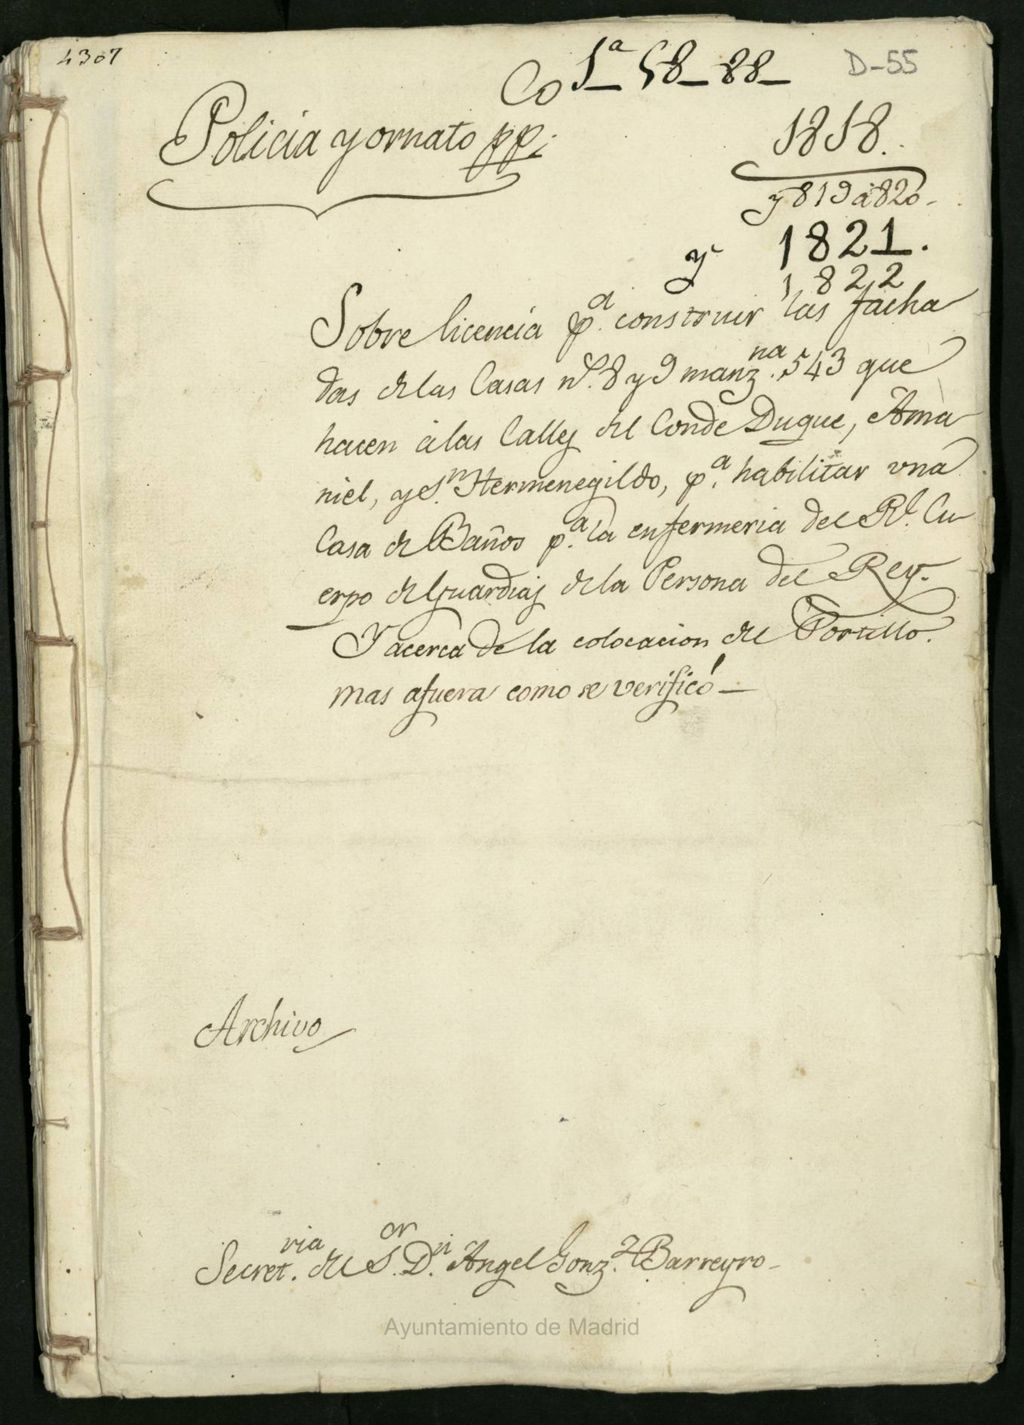 4307
Co 1ª 58-88-
D-55
Policia y ornato pp.
1818.
y 819 á 820.
y 1821.
1822
Sobre licencia pª. construir las facha
das de las Casas nº. 8 y 9 manzna. 543 que
hacen á las Calles del Conde Duque, Ama
niel, y Sn. Hermenegildo, pª. habilitar una
Casa de Baños pª. la enfermeria del Rl. Cu
erpo de Guardias de la Persona del Rey.
Y acerca de la colocacion del Portillo.
mas afuera como se verificó—
Archivo
Secretria. del Sor. Dn. Angel Gonzz. Barreyro-
Ayuntamiento de Madrid